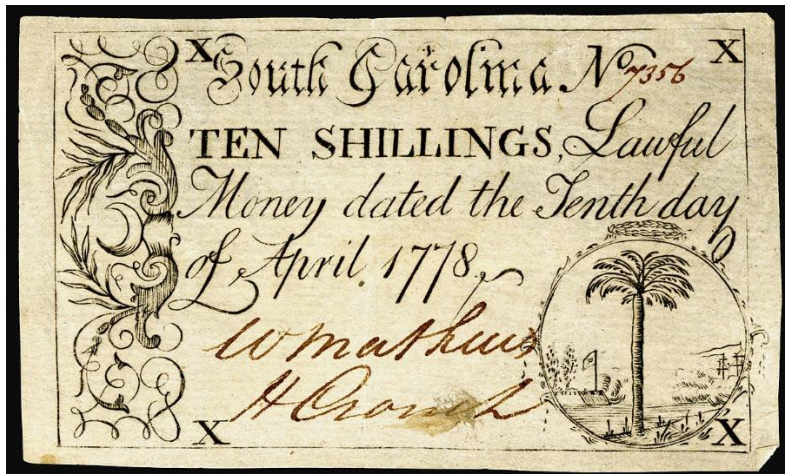 X South Carolina No 7356 X
TEN SHILLINGS, Lawful
Money dated the Tenth day
of April. 1778.
W Mathews
H Crouch
X X